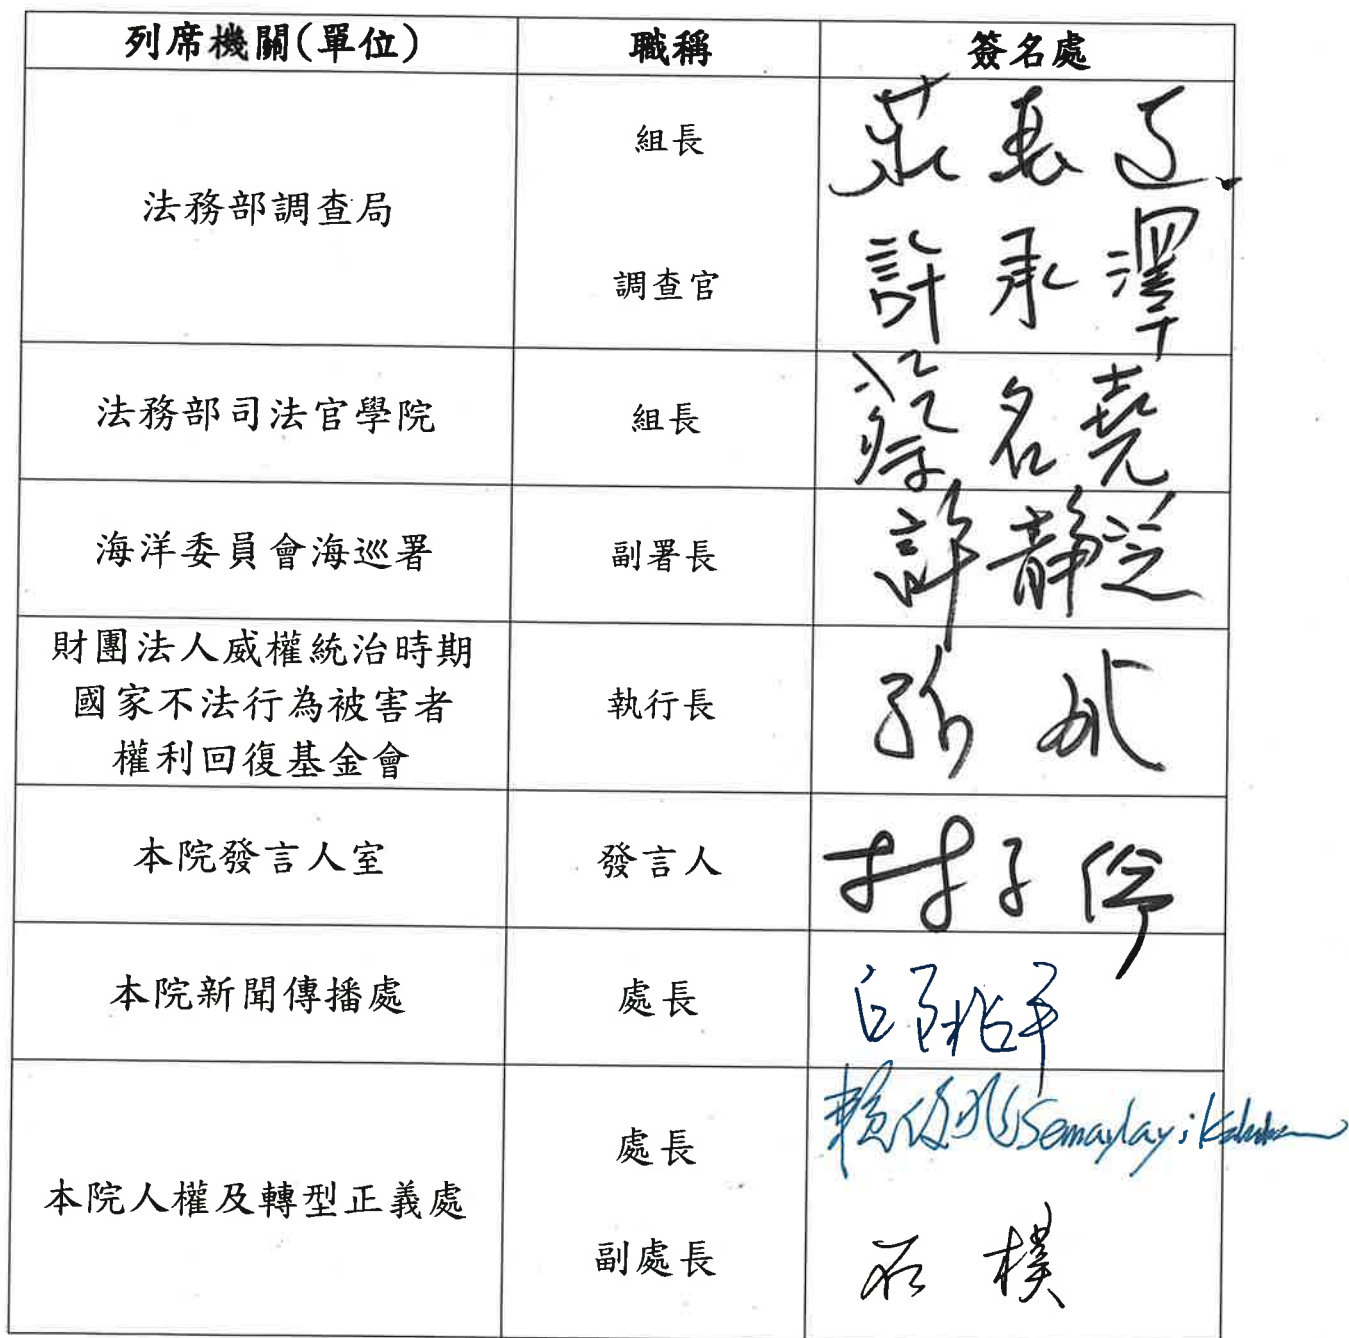 列席機關(單位) 職稱 簽名處
法務部調查局
組長
調查官 許承澤
法務部司法官學院 組長 蔡名堯
海洋委員會海巡署 副署長 許靜芝
財團法人威權統治時期
國家不法行為被害者
權利回復基金會
執行長 孫斌
本院發言人室 發言人 林子倫
本院新聞傳播處 處長
本院人權及轉型正義處
處長 賴俊兆 Semaylay i Kakubaw
副處長 石樸